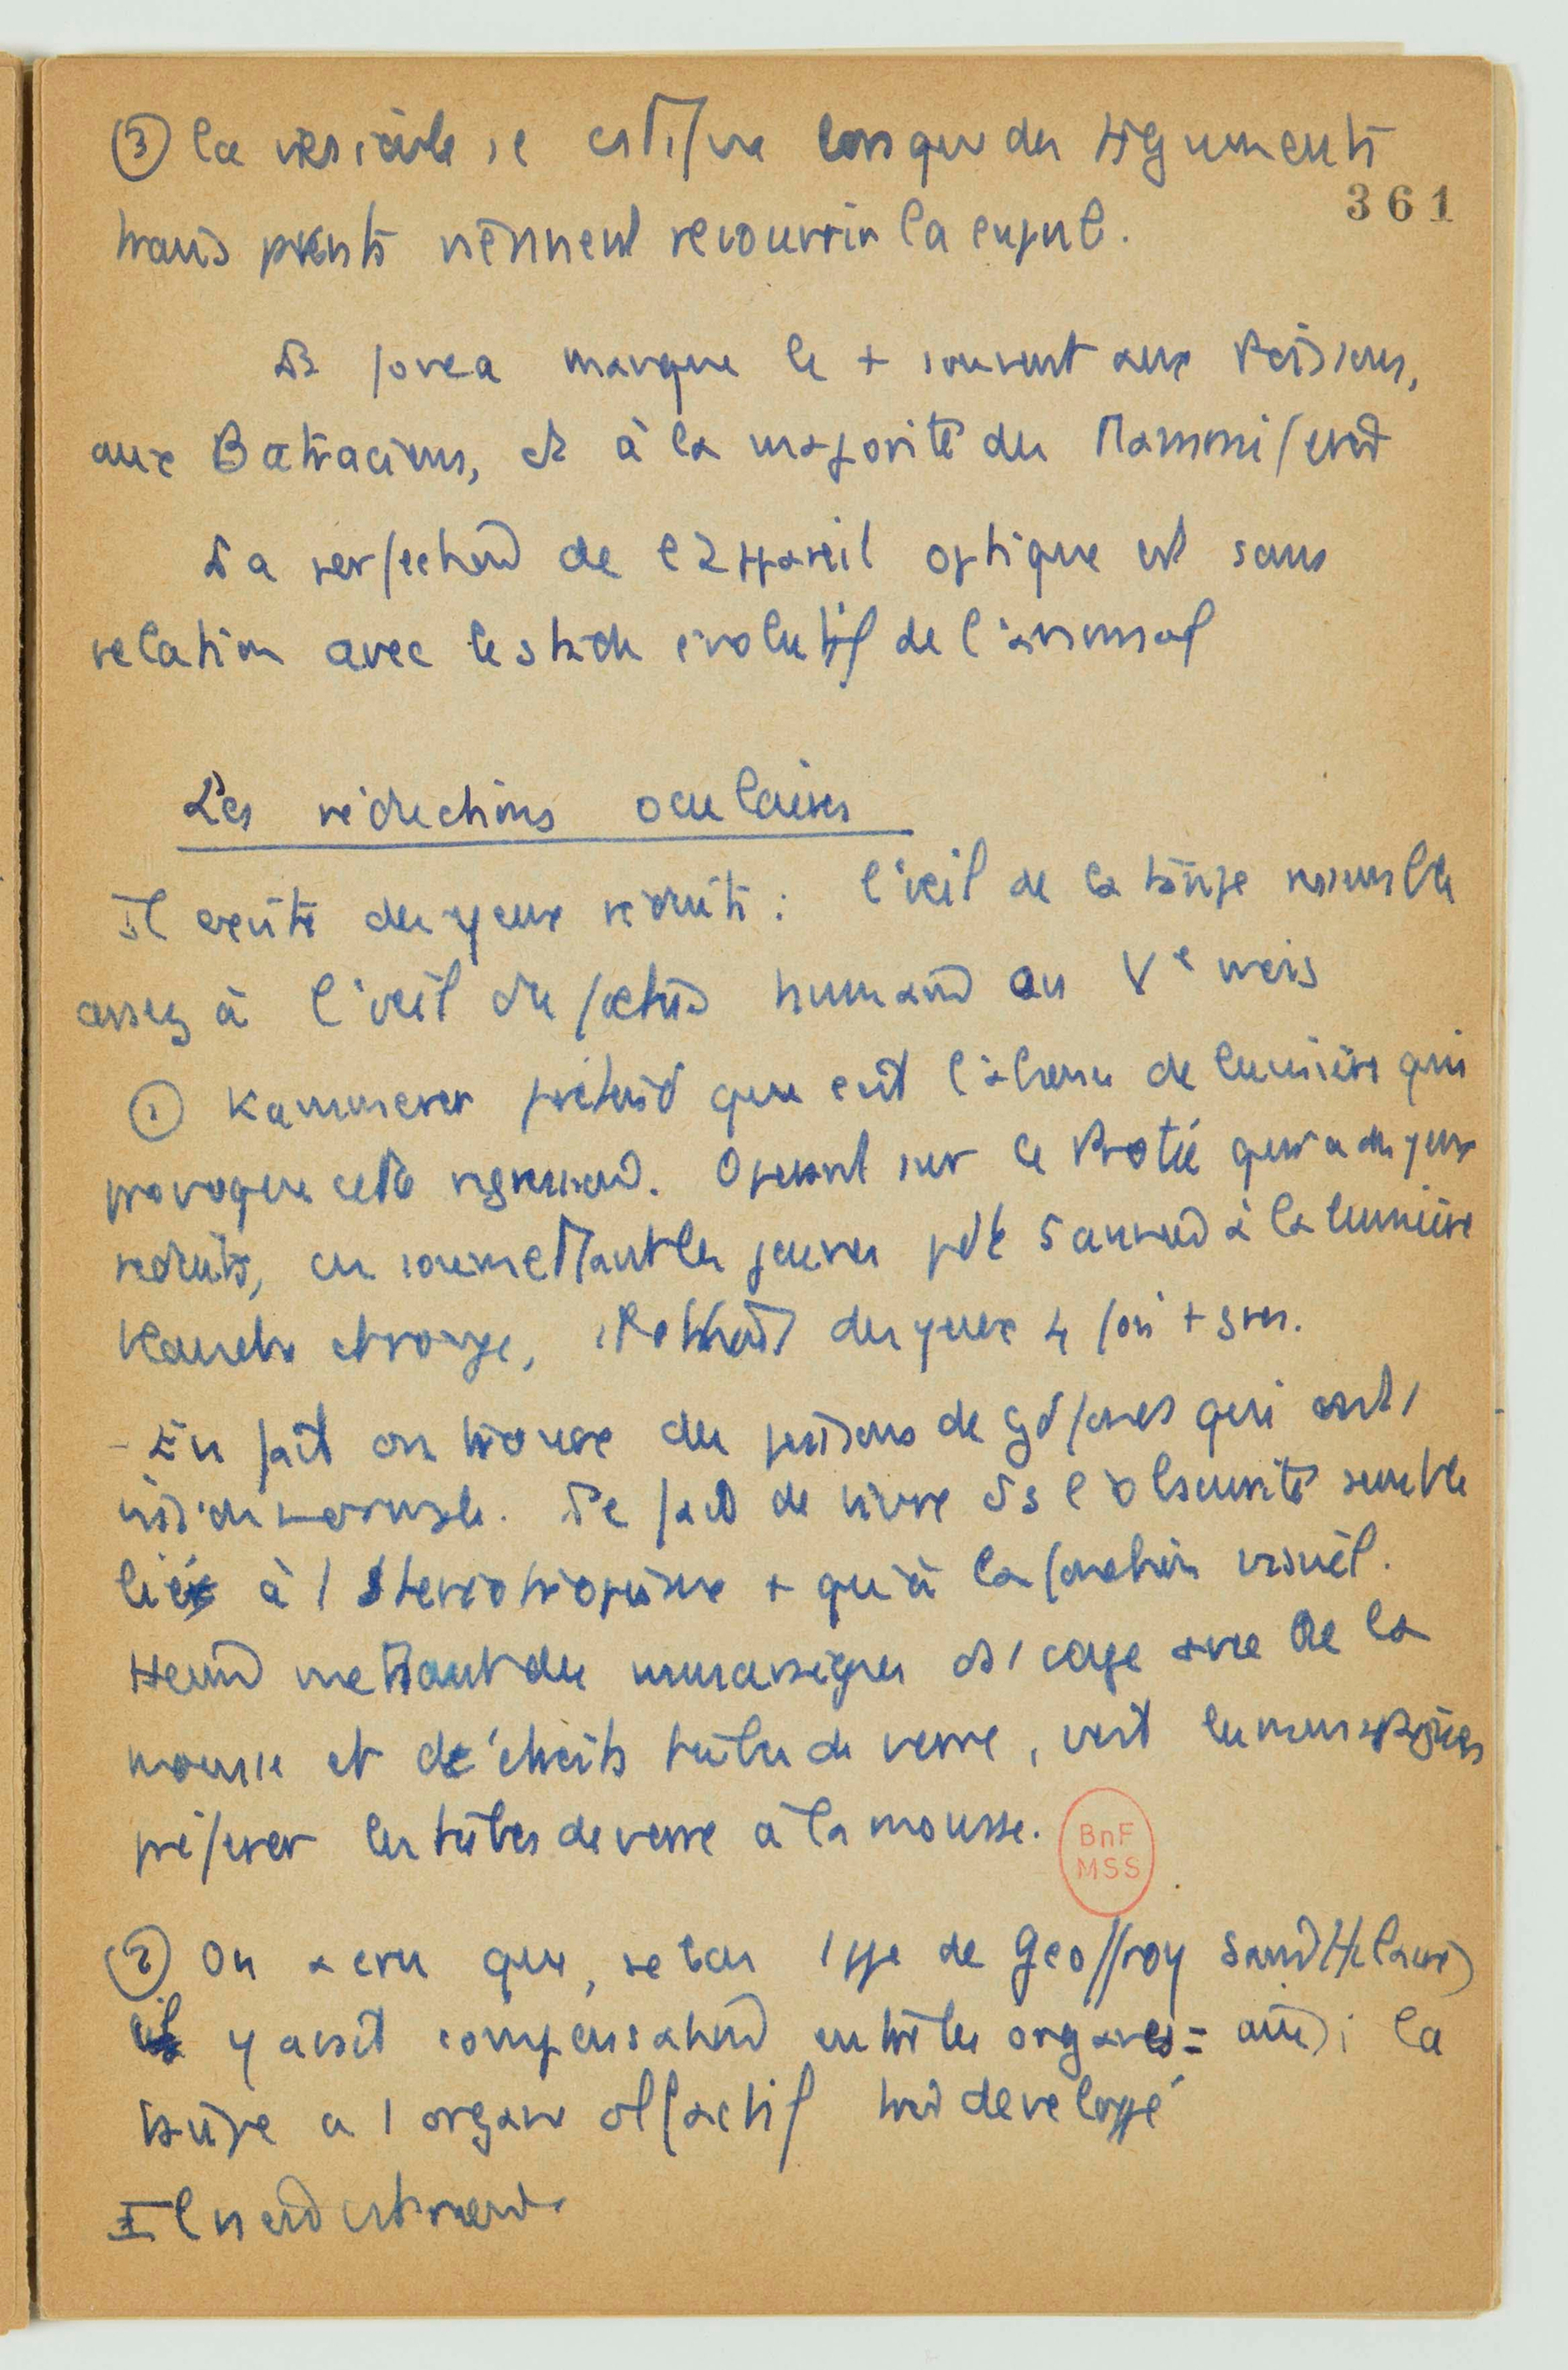 ③ la vésicule se constitue lorsque des téguments
361
transparents viennent recouvrir la cupule.
La fovea manque le + souvent aux Poissons,
aux Batraciens, et à la majorité des Mammifères
La perfection de l'appareil optique est sans
relation avec le stade évolutif de l'animal
Les réductions oculaires
Il existe des yeux réduits : l'œil de la taupe ressemble
assez à l'œil du fœtus humain au Ve mois
① Kammerer prétend que c'est l'absence de lumière qui
provoque cette régression. Opérant sur le Protée qui a des yeux
réduits, en soumettant les jeunes pdt 5 années à la lumière
blanche et rouge, obtient des yeux 4 fois + grds.
- En fait on trouve des poissons de gds fonds qui ont 1
vision normale. Le fait de vivre ds l'obscurité semble
lié à 1 stéréotropisme + qu'à la fonction visuel.
mettant des musaraignes ds 1 cage avec de la
mousse et d'étroits tubes de verre, voit les musaraignes
préférer les tubes de verre à la mousse.
BnF
MSS
② On a cru que, selon l'hyp de Geoffroy Saint Hilaire
il y avait compensation entre les organes = ainsi la
taupe a 1 organe olfactif très developpé
Il n'en est rien.